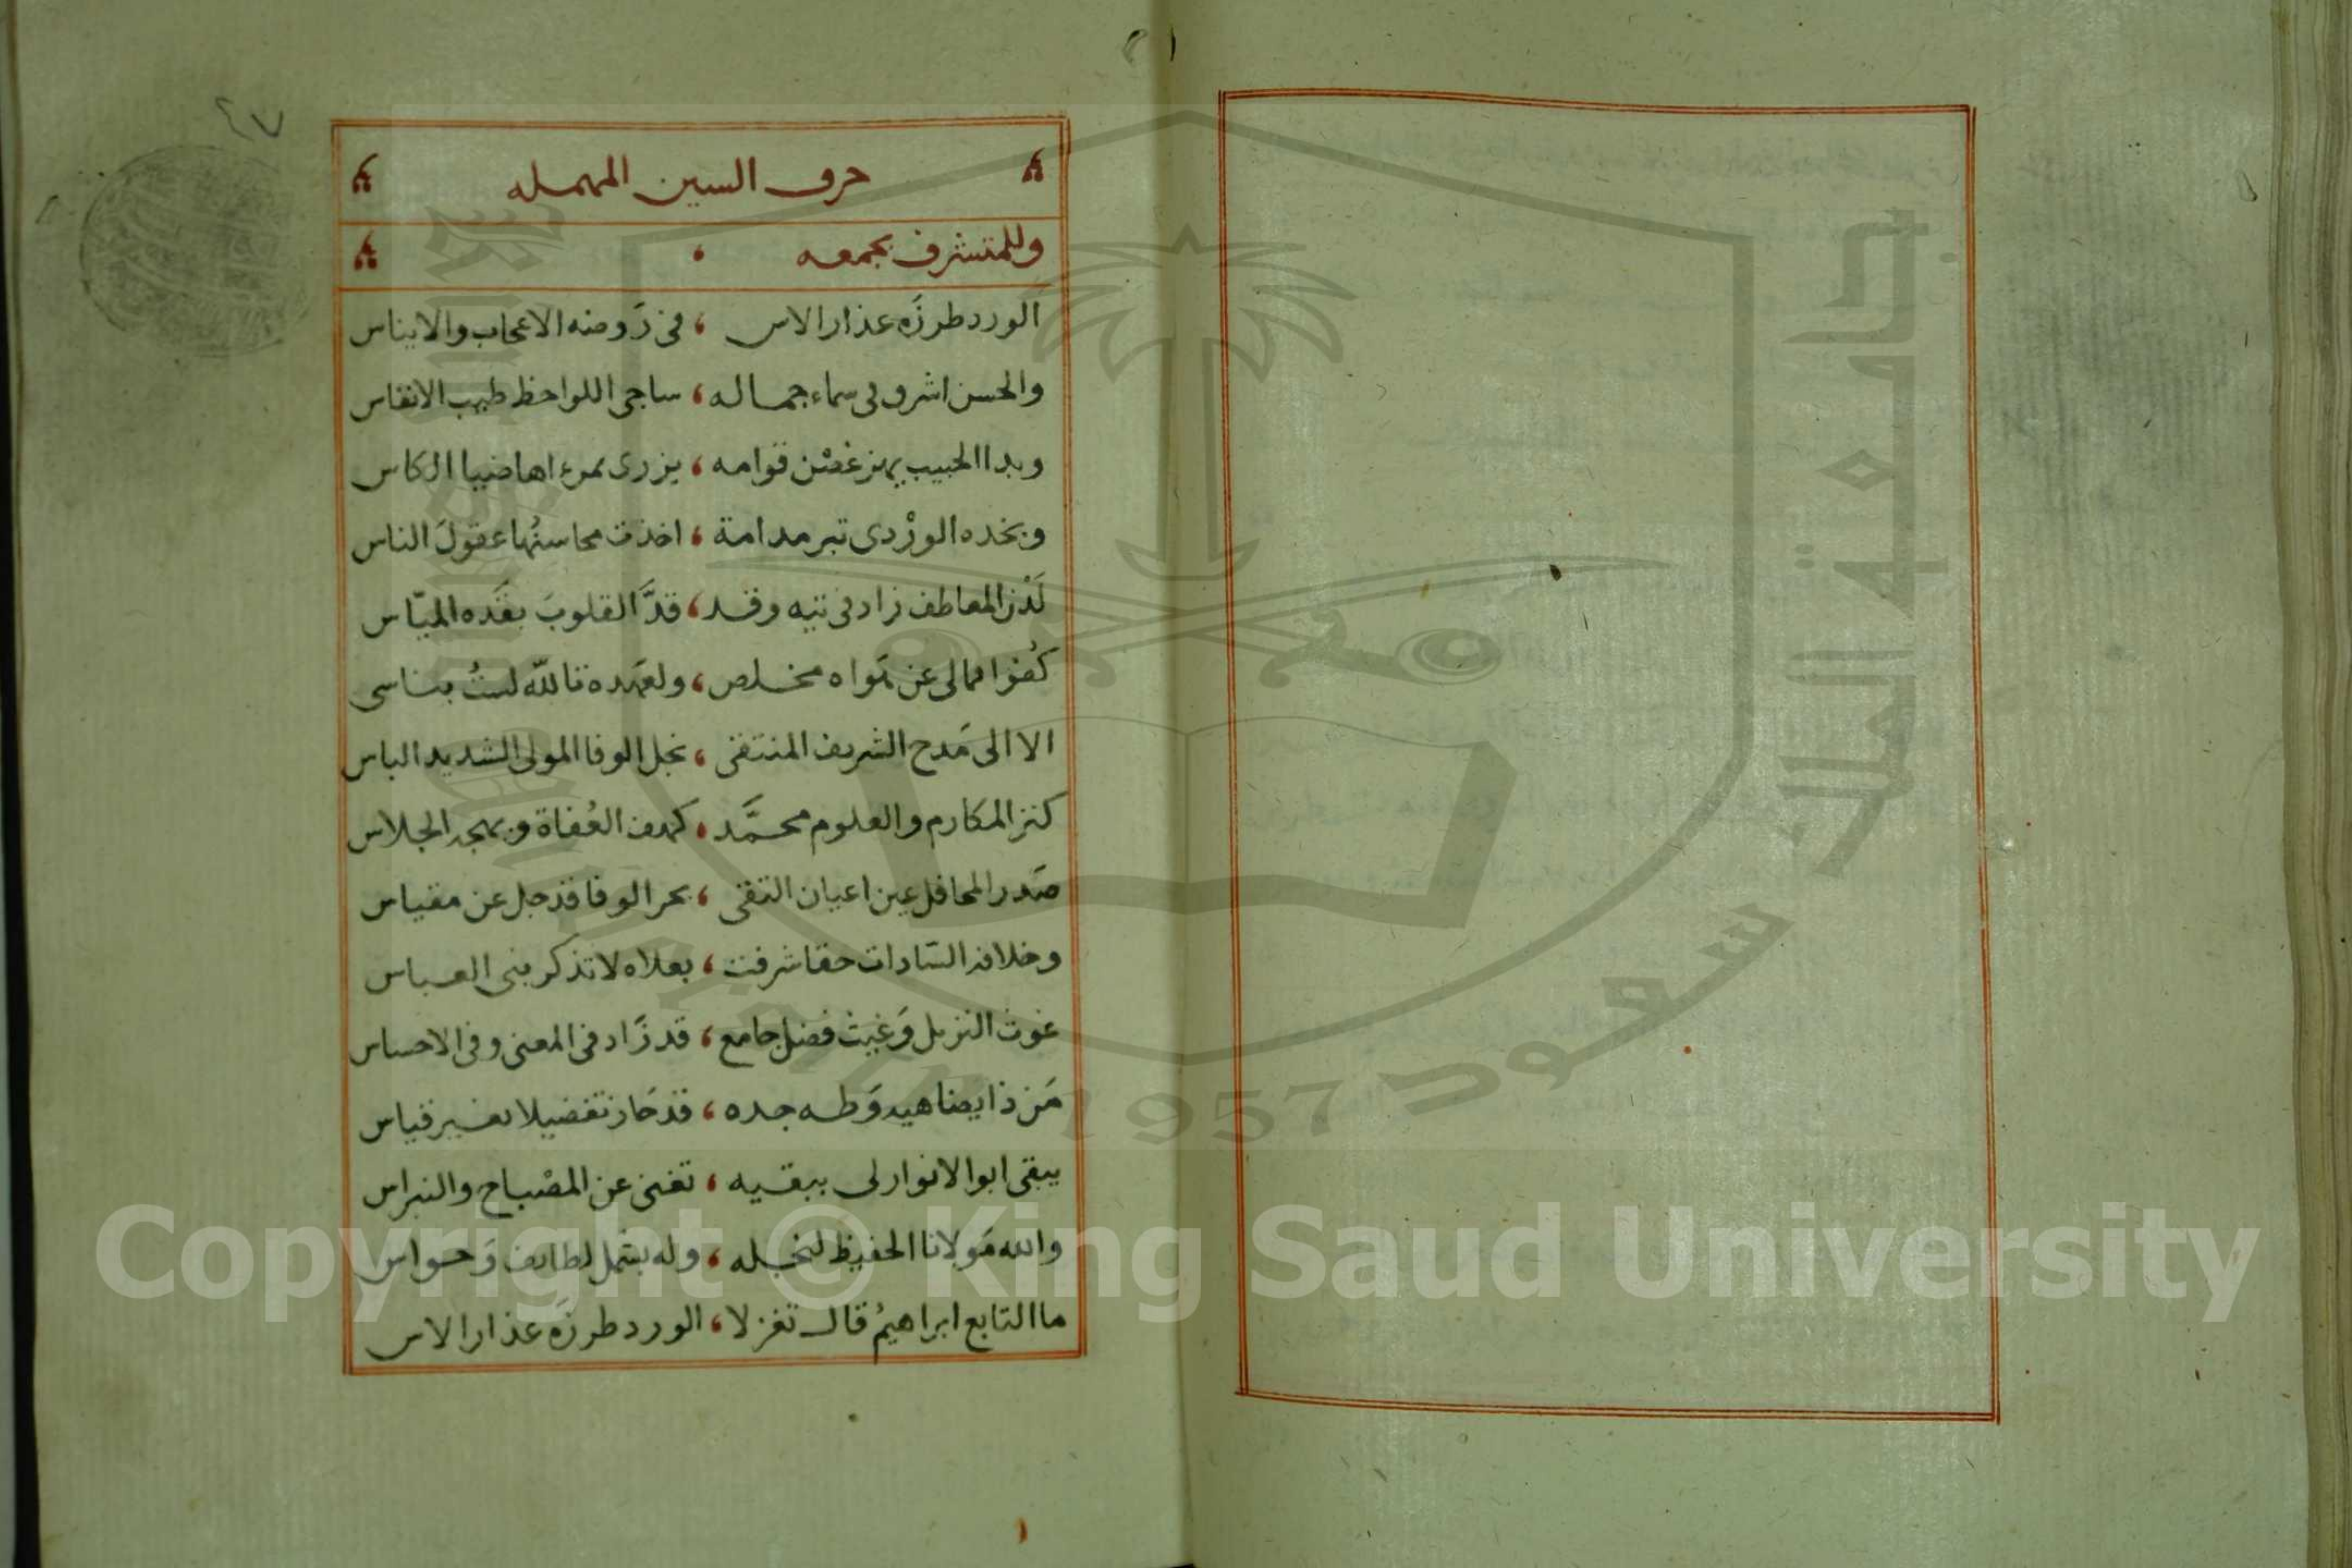 ٤٧
حرف السين المهمله
وللمتشرف بجمعه
الورد طرزه عذار الاس ، فى رَوضه الاعجاب والايناس
والحسن اشرق فى سماء جماله ، ساجى اللواحظ طيب الانفاس
وبدا الحبيب يهز غصْن قوامه ، يزرى بمرءاها ضيا الكاس
وبخده الورْدى تبر مدامة ، اخذت محاسنُها عقولَ الناس
لَدْن المعاطف زاد فى تيه وقد ، قدَّ القلوبَ بقَده الميّاس
كُفوا فمالى عن هَواه مخلص ، ولعَهده تالله لستُ بناسى
الا الى مَدح الشريف المنتقى ، نجل الوفا المولى الشديد الباس
كنز المكارم والعلوم محمَّد ، كهف العُفاة وبهجة الجلاس
صَدر المحافل عين اعيان التقى ، بحر الوفا قد جل عن مقياس
وخلافة السّادات حقا شرفت ، بعلاه لا تذكر بنى العباس
غوث النزيل وَغيث فضل جامع ، قد زَاد فى المعنى وفى الاحساس
مَن ذا يضاهيه وَطه جده ، قد حَاز تفضيلا بغير قياس
يبقى ابو الانوار لى ببقيه ، تغنى عن المصْباح والنبراس
والله مَولانا الحفيظ لنجله ، وله بشمل لطايف وَحواس
ما التابع ابراهيمُ قال تغزلا ، الورد طرزَه عذار الاس
Copyright © King Saud University
جامعة الملك سعود
1957
King Saud University